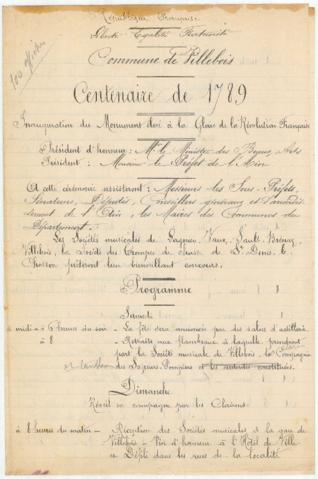 République Française
Liberté Egalité Fraternité
100 affiches
Commune de Villebois
Centenaire de 1789
Inauguration du Monument élevé à la Gloire de la Révolution Française
Président d'honneur : Mr le Ministre des Beaux Arts
Président : Monsieur le Préfet de l'Ain
A cette cérémonie assisteront : Messieurs les Sous-Préfets,
Sénateurs, Députés, Conseillers généraux et d'arrondis-
sement de l'Ain, les Maires des Communes du
Département.
Les Sociétés musicales de Lagnieu, Vaux, Sault-Brénaz,
Villebois, la Société des Trompes de Chasse de St Denis-le-
Chosson prêteront leur bienveillant concours.
Programme
Samedi
à midi et à 6 heures du soir - La fête sera annoncée par des salves d'artillerie
à 8 - Retraite aux flambeaux à laquelle prendront
part la Société musicale de Villebois, la Compagnie
des Sapeurs-Pompiers et les autorités constituées.
Dimanche
Réveil en campagne par les Clairons
à 8 heures du matin - Réception des Sociétés musicales à la gare de
Villebois - Vin d'honneur à l'Hôtel de Ville
et Défilé dans les rues de la localité